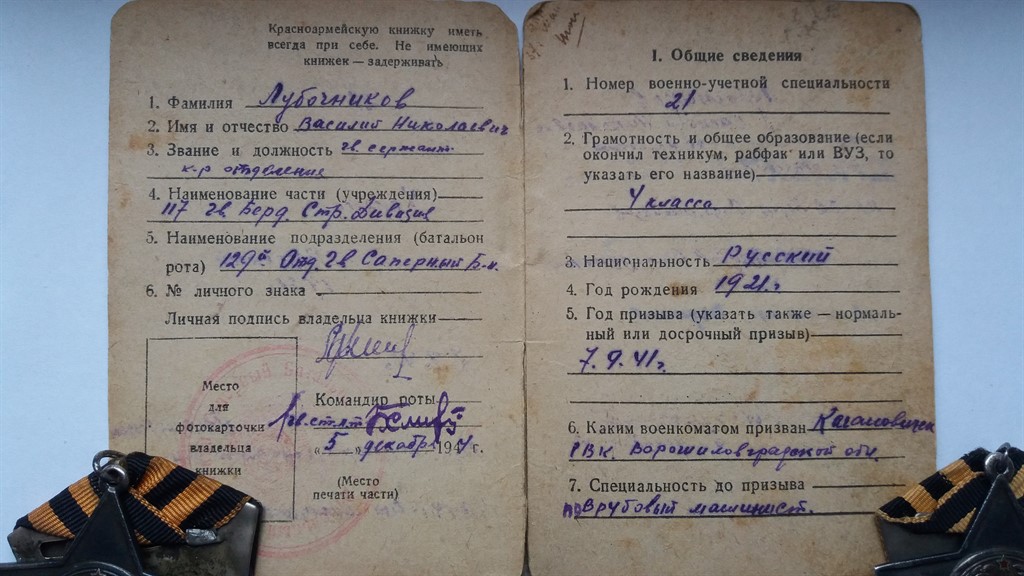 Красноармейскую книжку иметь
всегда при себе. Не имеющих
книжек — задерживать
1. Фамилия Лубочников
2. Имя и отчество Василий Николаевич
3. Звание и должность гв. сержант
к-р отделения
4. Наименование части (учреждения)
117 Гв Берд. Стр. Дивизия
5. Наименование подразделения (батальон
рота) 129й Отд. Гв Саперный Б-н.
6. № личного знака
Личная подпись владельца книжки
Место
для
фотокарточки
владельца
книжки
Командир роты
гв. ст. л-т
„5 " декабря 1944 г.
(Место
печати части)
I. Общие сведения
1. Номер военно-учетной специальности
21
2. Грамотность и общее образование (если
окончил техникум, рабфак или ВУЗ, то
указать его название)
4 класса
3. Национальность Русский
4. Год рождения 1921 г.
5. Год призыва (указать также — нормаль-
ный или досрочный призыв)
7. 9. 41 г.
6. Каким военкоматом призван
РВК. Ворошиловградской обл.
7. Специальность до призыва
Врубовый машинист.